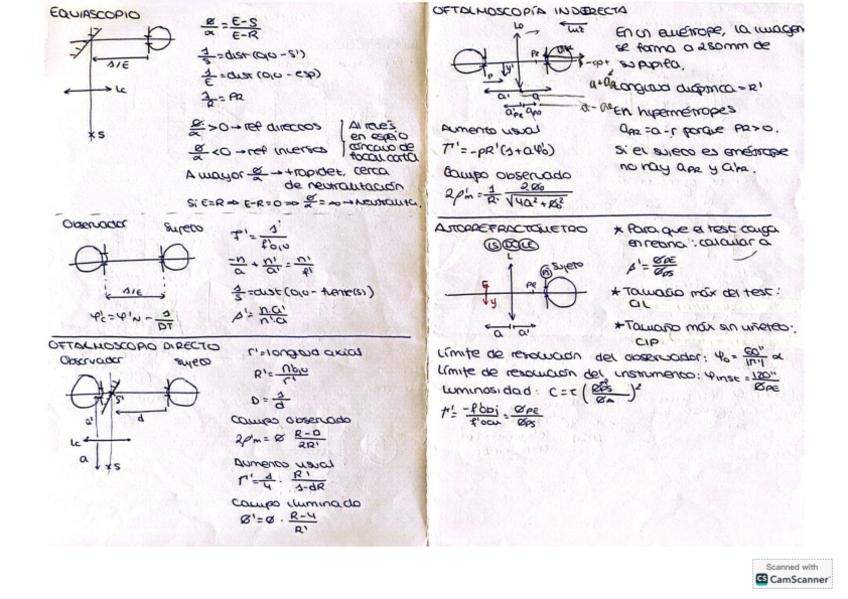 EQUIASCOPIO
Ø/α = E-S/E-R
1/S = dist(0,0-S')
1/E = dist(0,0-esp)
1/R = PR
1/E
Lc
S
Ø/α >0 → ref directos
Ø/α <0 → ref inversos
Al revés en espejo cóncavo de focal corta
A mayor Ø/α → +rapidez, cerca
de neutralización
Si E=R ⇒ E-R=0 ⇒ Ø/α = ∞ → Neutraliza.
Observador
Sujeto
1/E
-n/a + n'/a' = n'/f'
1/S = dist(0,0-fuente(s))
β' = n.a'/n'.a
OFTALMOSCOPIO DIRECTO
Observador
Sujeto
r' = longitud axial
D = 1/d
Campo observado
2ρm = Ø R-D/2R'
Aumento visual
Γ' = 1/4 · R'/1-dR
Campo iluminado
Ø' = Ø · R-4/R'
d
Lc
a
S
OFTALMOSCOPÍA INDIRECTA
En un emétrope, la imagen
se forma a 250mm de
su pupila.
Longitud dióptrica = R'
En hipermétropes
aPR = a-r porque PR>0.
Si el sujeto es emétrope
no hay aPR y a'PR.
Aumento visual
Campo observado
AUTORREFRACTÓMETRO
L
Sujeto
E
y
a
a'
* Para que el test caiga
en retina: calcular a
β' = ØPE/ØPS
* Tamaño máx del test:
CIL
* Tamaño máx sin viñeteo:
CIP
Límite de resolución del observador:
Límite de resolución del instrumento: φinst = 120"/ØPE
Luminosidad:
Γ' = -f'obj/f'ocu = ØPE/ØPS
Scanned with
CS CamScanner